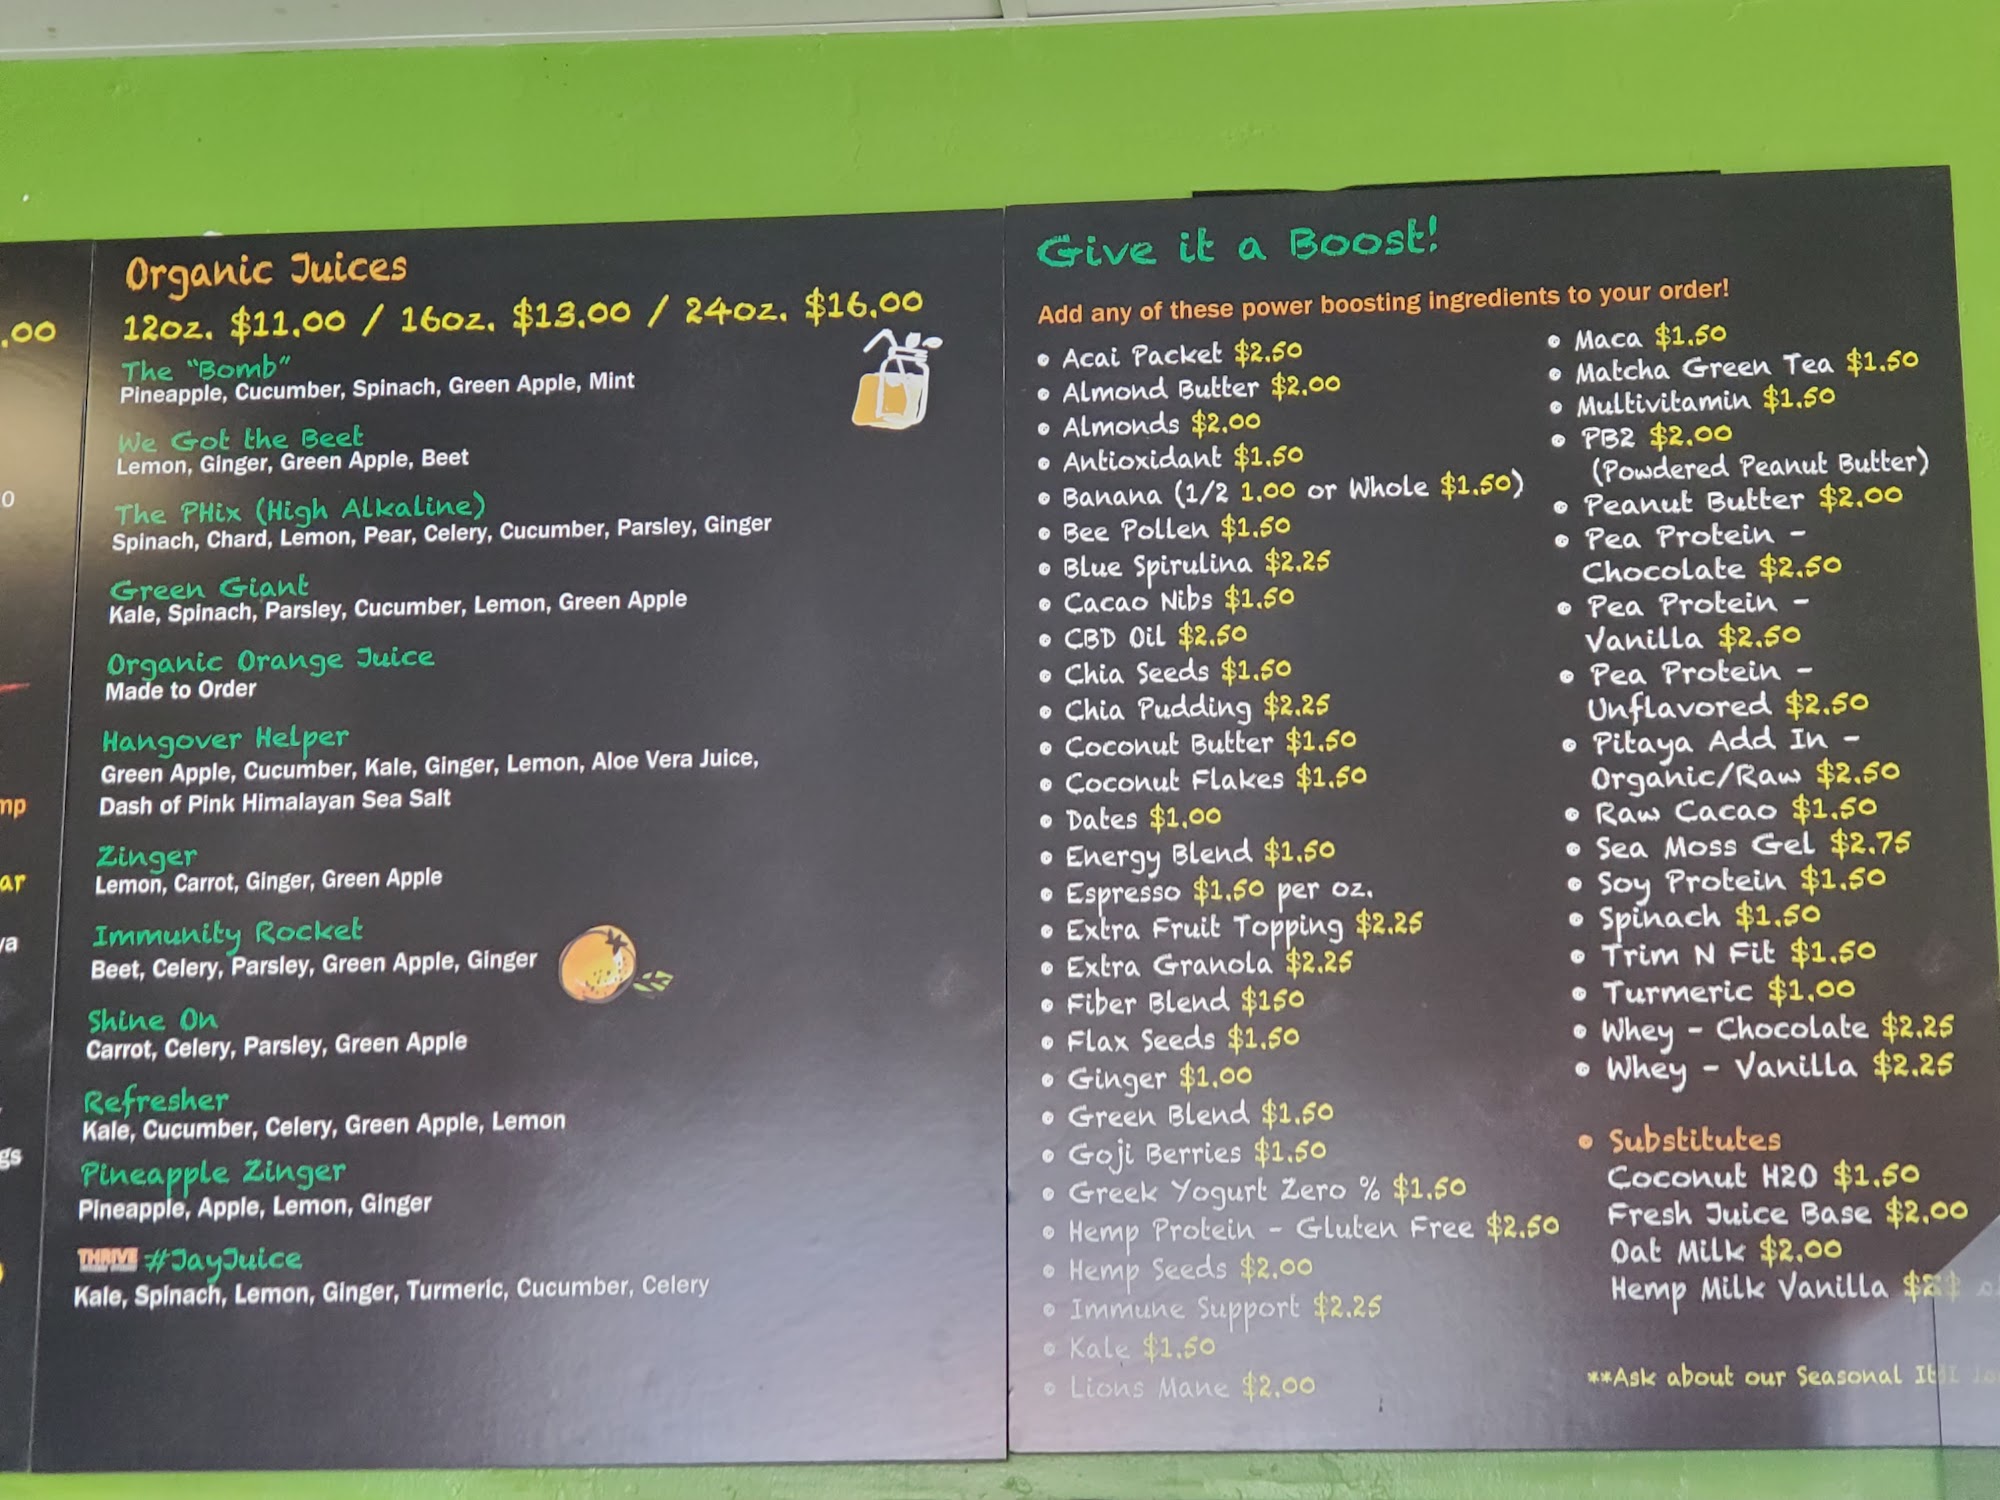 .00
o
mp
ar
ya
gs
Organic Juices
12oz. $11.00 / 16oz. $13.00 / 24oz. $16.00
The "Bomb"
Pineapple, Cucumber, Spinach, Green Apple, Mint
We Got the Beet
Lemon, Ginger, Green Apple, Beet
The PHix (High Alkaline)
Spinach, Chard, Lemon, Pear, Celery, Cucumber, Parsley, Ginger
Green Giant
Kale, Spinach, Parsley, Cucumber, Lemon, Green Apple
Organic Orange Juice
Made to Order
Hangover Helper
Green Apple, Cucumber, Kale, Ginger, Lemon, Aloe Vera Juice,
Dash of Pink Himalayan Sea Salt
Zinger
Lemon, Carrot, Ginger, Green Apple
Immunity Rocket
Beet, Celery, Parsley, Green Apple, Ginger
Shine On
Carrot, Celery, Parsley, Green Apple
Refresher
Kale, Cucumber, Celery, Green Apple, Lemon
Pineapple Zinger
Pineapple, Apple, Lemon, Ginger
THRIVE #JayJuice
Kale, Spinach, Lemon, Ginger, Turmeric, Cucumber, Celery
Give it a Boost!
Add any of these power boosting ingredients to your order!
• Acai Packet $2.50
• Almond Butter $2.00
• Almonds $2.00
• Antioxidant $1.50
• Banana (1/2 1.00 or Whole $1.50)
• Bee Pollen $1.50
• Blue Spirulina $2.25
• Cacao Nibs $1.50
• CBD Oil $2.50
• Chia Seeds $1.50
• Chia Pudding $2.25
• Coconut Butter $1.50
• Coconut Flakes $1.50
• Dates $1.00
• Energy Blend $1.50
• Espresso $1.50 per oz.
• Extra Fruit Topping $2.25
• Extra Granola $2.25
• Fiber Blend $150
• Flax Seeds $1.50
• Ginger $1.00
• Green Blend $1.50
• Goji Berries $1.50
• Greek Yogurt Zero % $1.50
• Hemp Protein - Gluten Free $2.50
• Hemp Seeds $2.00
• Immune Support $2.25
• Kale $1.50
• Lions Mane $2.00
• Maca $1.50
• Matcha Green Tea $1.50
• Multivitamin $1.50
• PB2 $2.00
(Powdered Peanut Butter)
• Peanut Butter $2.00
• Pea Protein -
Chocolate $2.50
• Pea Protein -
Vanilla $2.50
• Pea Protein -
Unflavored $2.50
• Pitaya Add In -
Organic/Raw $2.50
• Raw Cacao $1.50
• Sea Moss Gel $2.75
• Soy Protein $1.50
• Spinach $1.50
• Trim N Fit $1.50
• Turmeric $1.00
• Whey - Chocolate $2.25
• Whey - Vanilla $2.25
• Substitutes
Coconut H2O $1.50
Fresh Juice Base $2.00
Oat Milk $2.00
Hemp Milk Vanilla
**Ask about our Seasonal